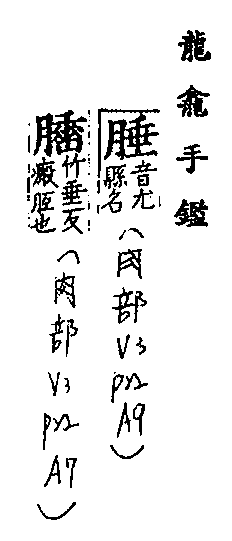 龍龕手鑑
腄音尤縣名(肉部V3P22A9)
膰竹垂反瘢胝也(肉部V3P22A7)